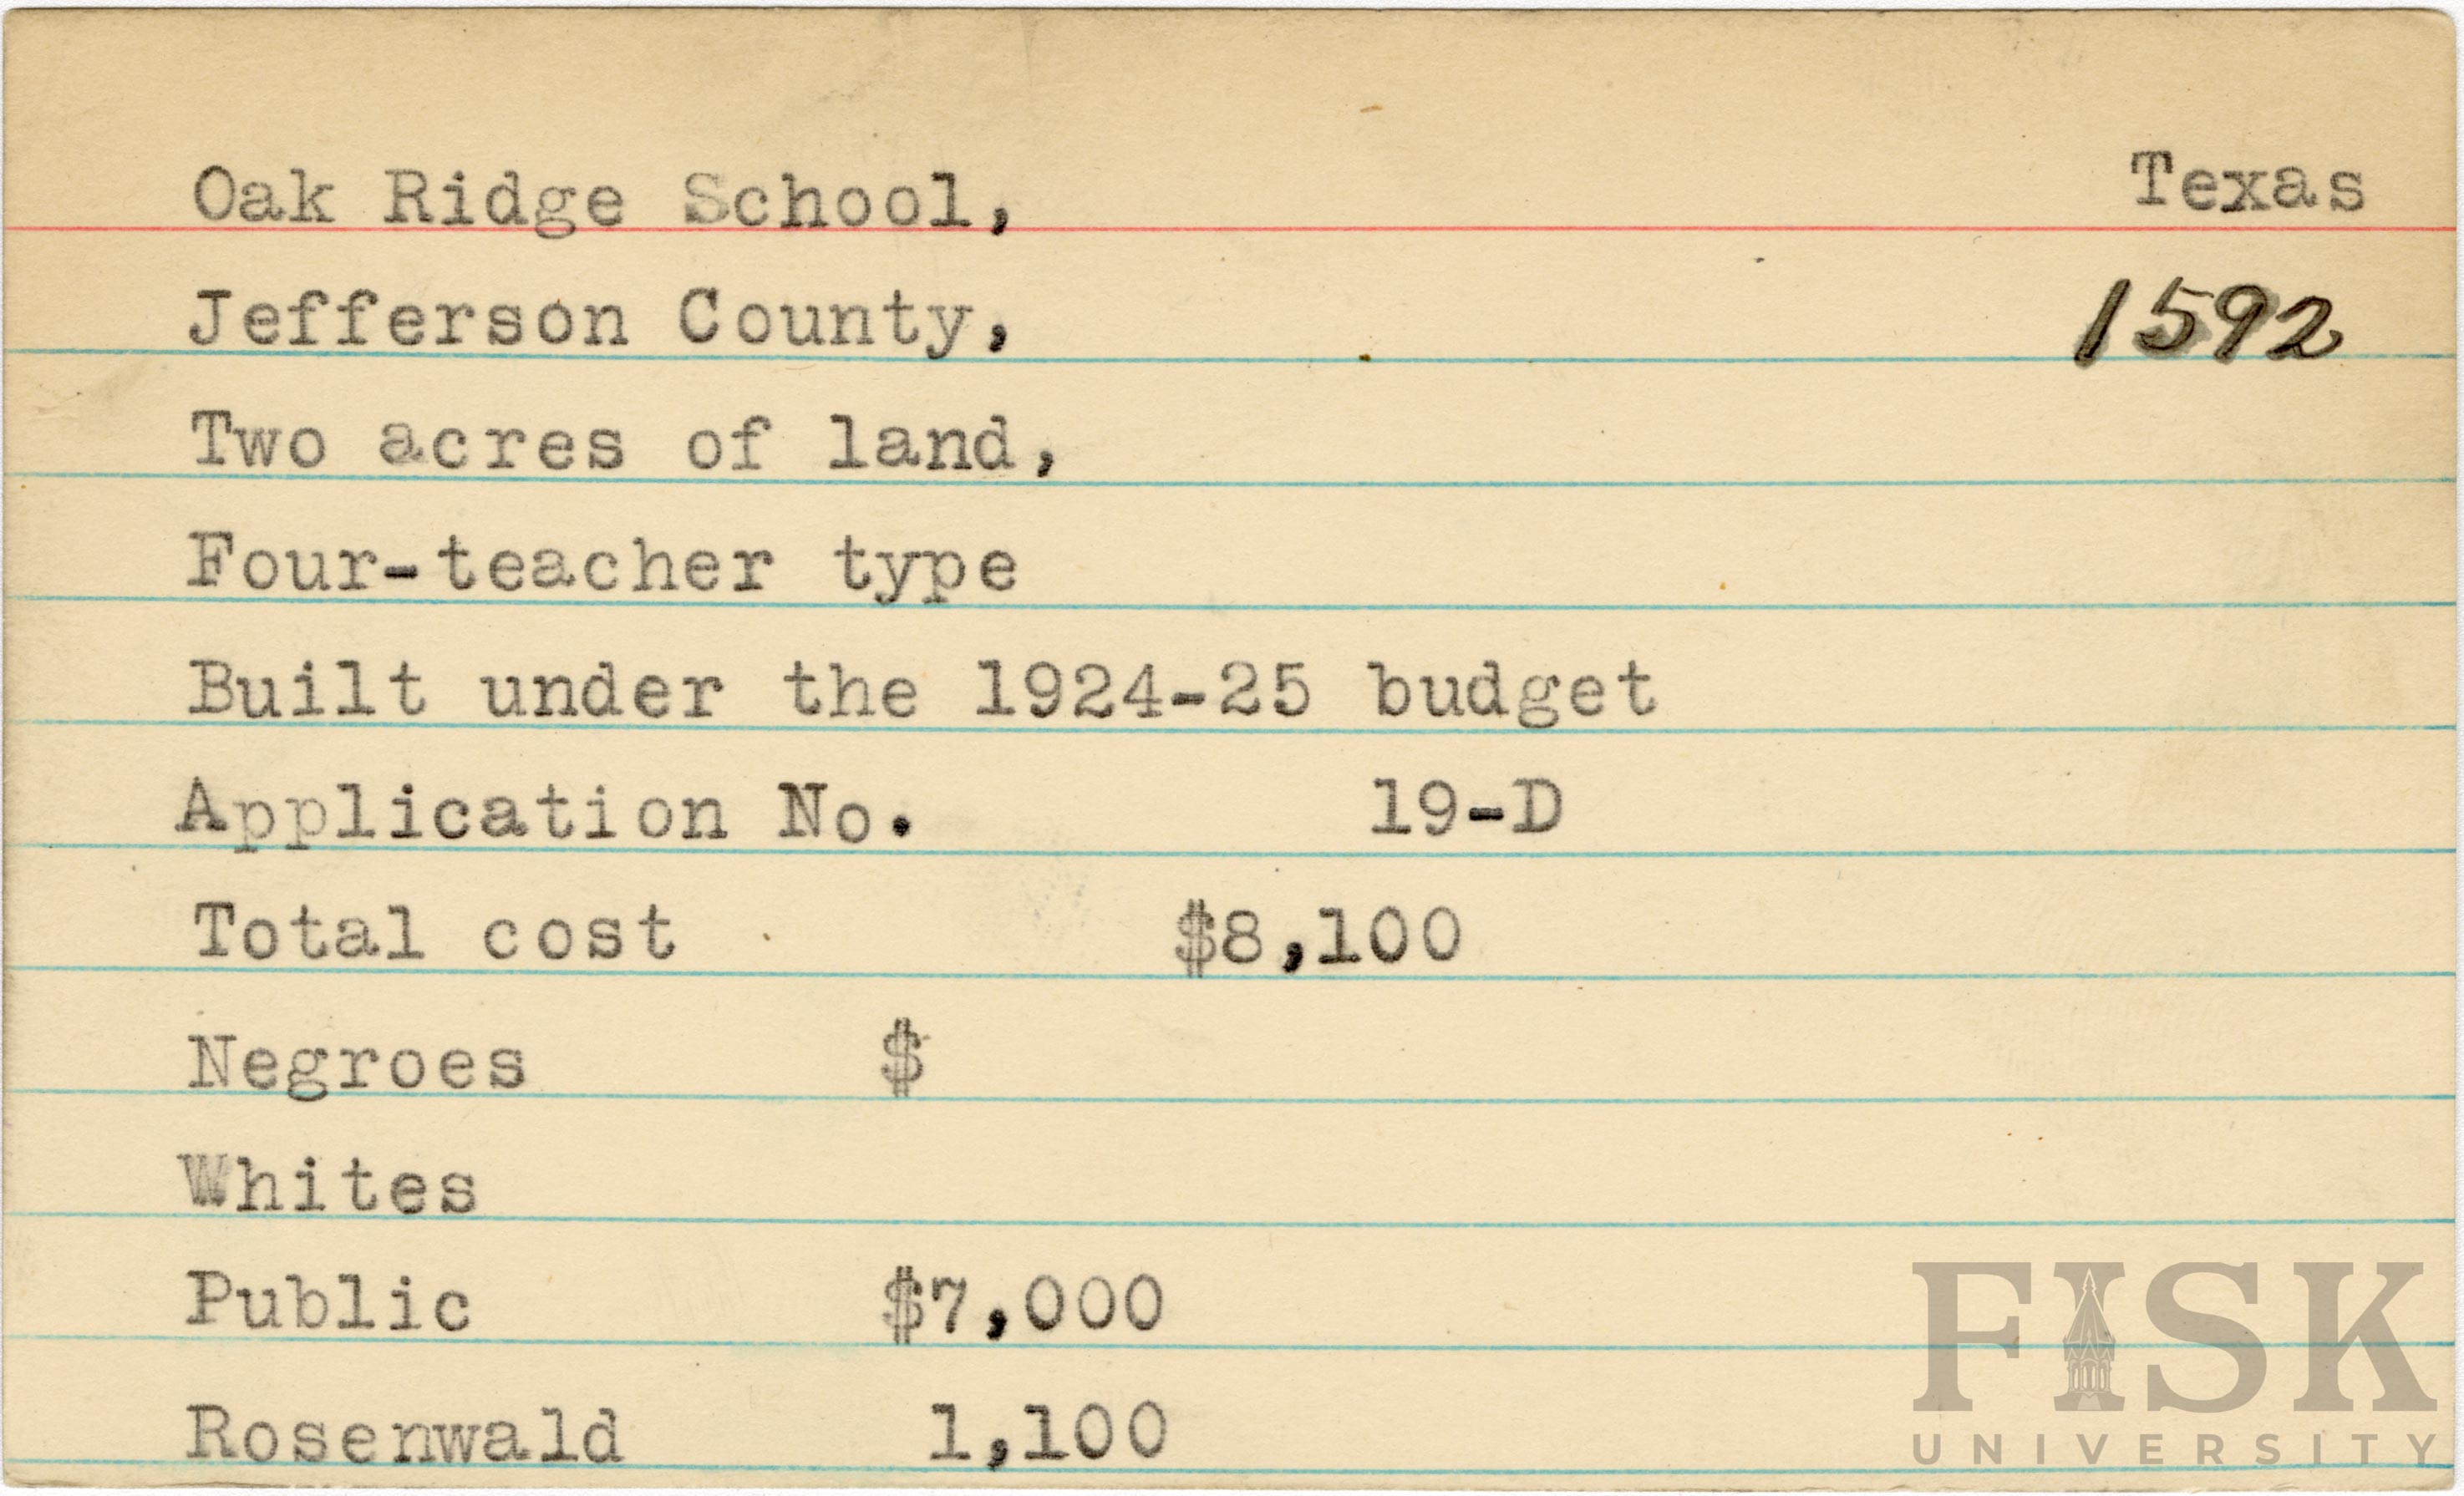 Oak Ridge School, Texas
Jefferson County, 1592
Two acres of land,
Four-teacher type
Built under the 1924-25 budget
Application No. 19-D
Total cost $8,100
Negroes $
Whites
Public $7,000
Rosenwald 1,100
FISK
UNIVERSITY